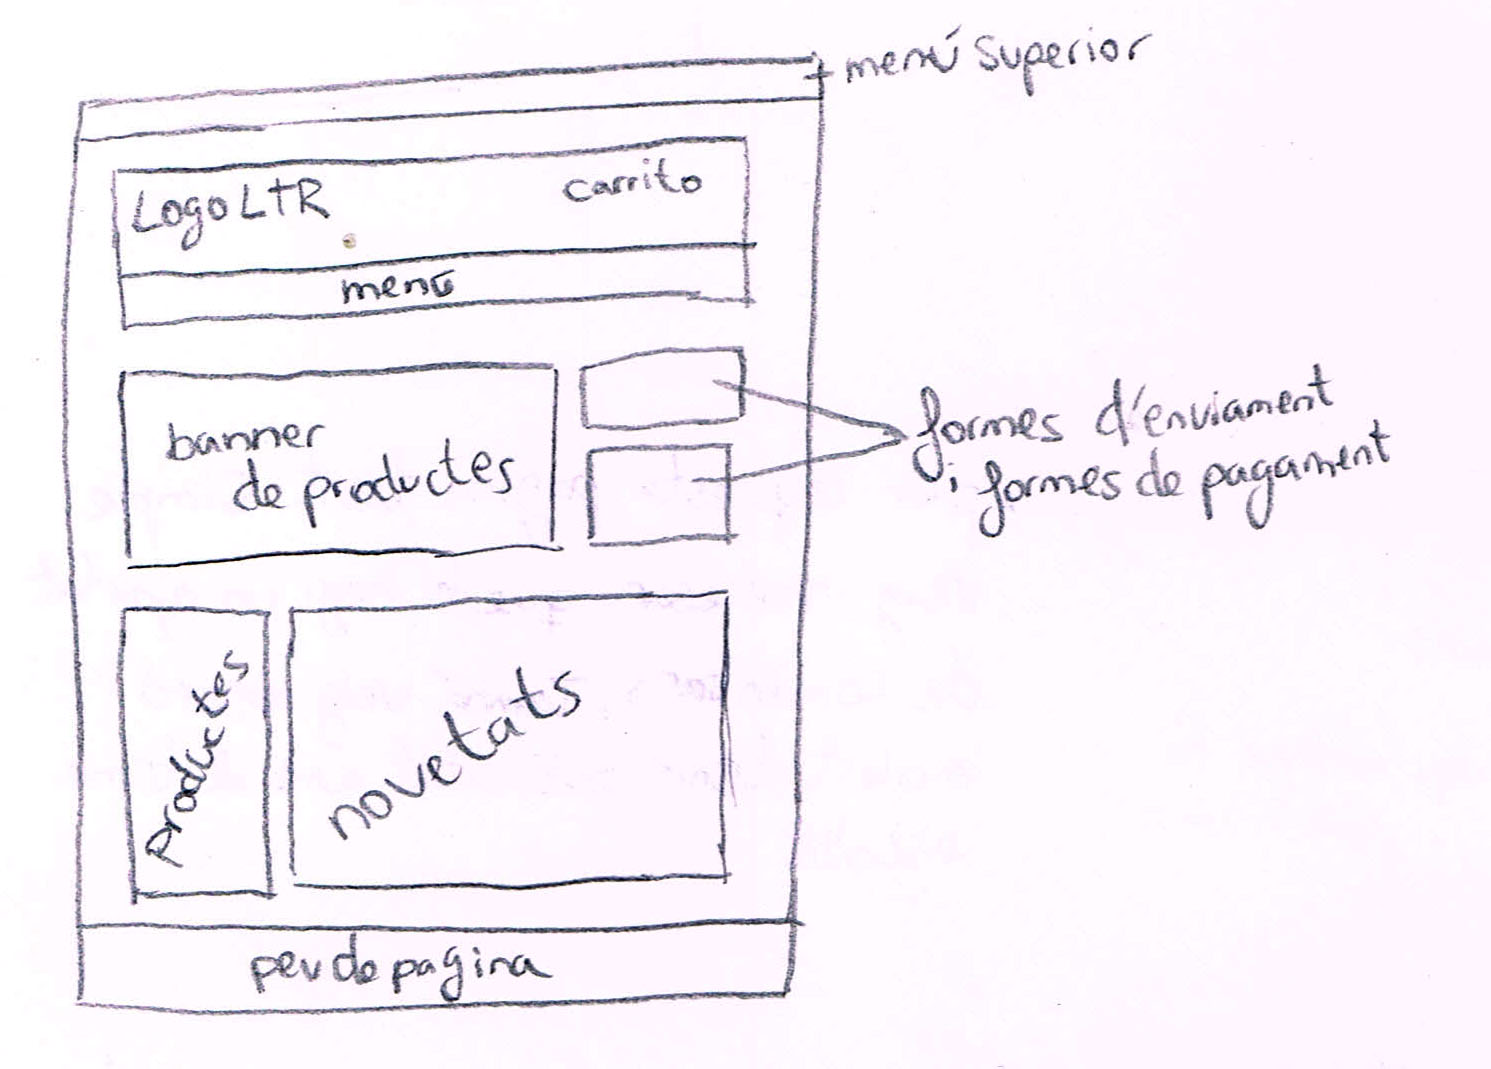 menú superior
Logo LTR
carrito
menú
banner
de productes
formes d'enviament
i formes de pagament
productes
novetats
peu de pagina